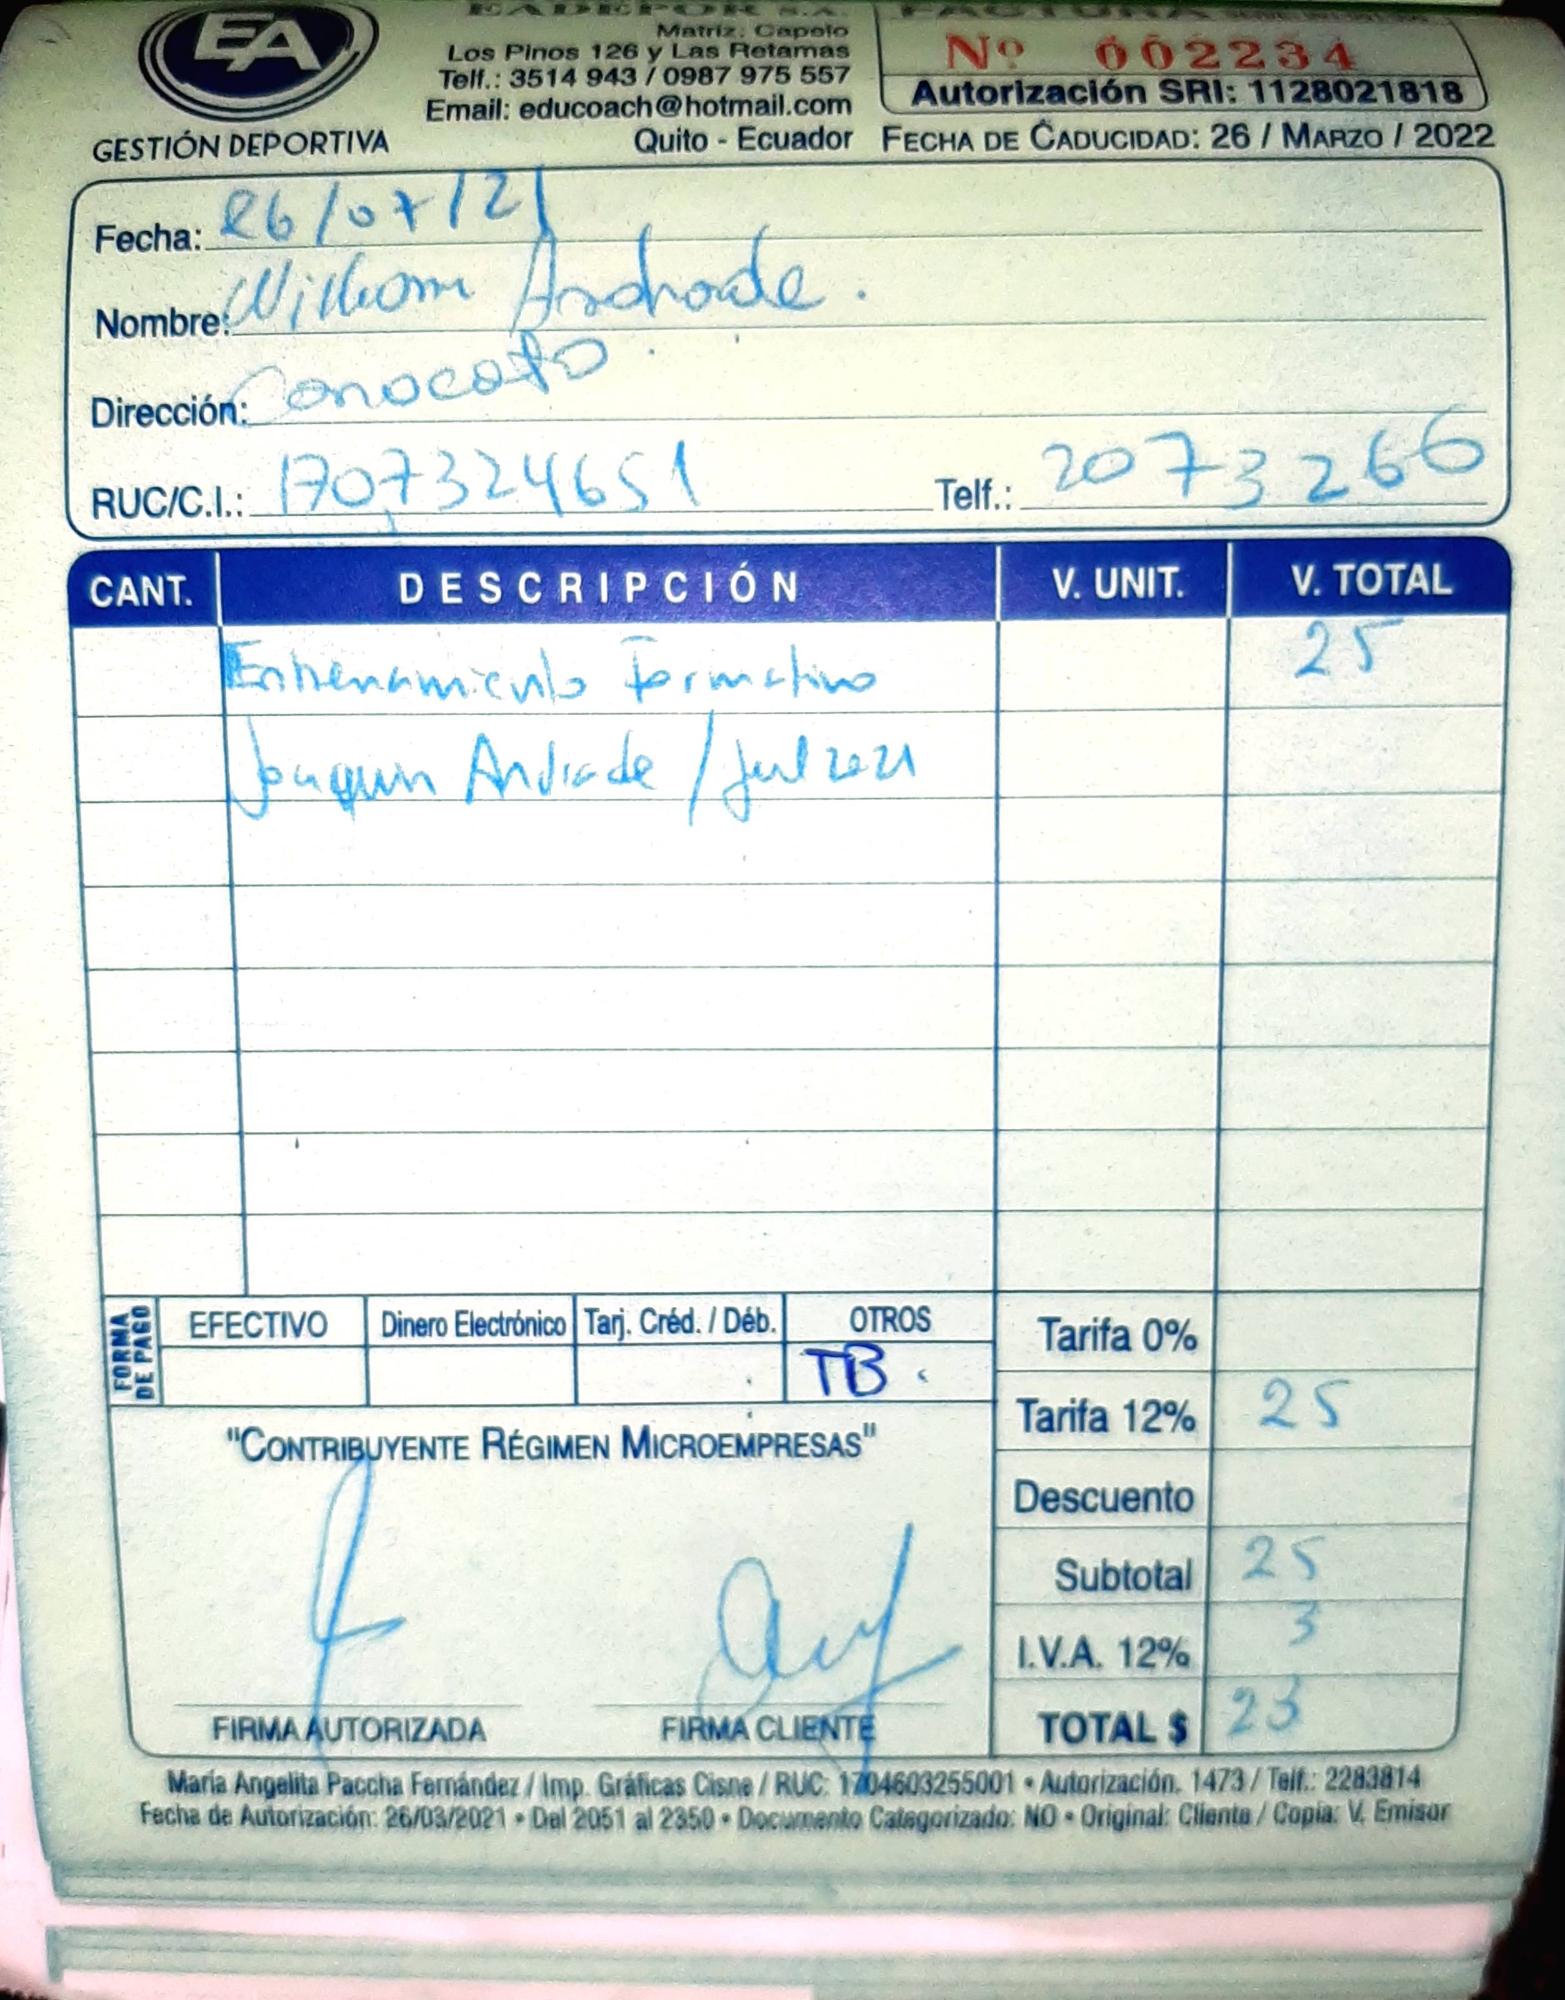 EADEPOR S.A. FACTURA
EA
GESTIÓN DEPORTIVA
Matriz: Capelo
Los Pinos 126 y Las Retamas
Telf.: 3514 943 / 0987 975 557
Email: educoach@hotmail.com
Quito - Ecuador
Nº 002234
Autorización SRI: 1128021818
FECHA DE CADUCIDAD: 26 / MARZO / 2022
Fecha: 26/07/21
Nombre: William Andrade.
Dirección: Conocoto
RUC/C.I.: 1707324651 Telf.: 2073266
CANT. DESCRIPCIÓN V. UNIT. V. TOTAL
Entrenamiento Formativo 25
Joaquin Andrade / Jul 2021
FORMA DE PAGO
EFECTIVO Dinero Electrónico Tarj. Créd. / Déb. OTROS
TB
Tarifa 0%
Tarifa 12% 25
Descuento
Subtotal 25
I.V.A. 12% 3
TOTAL $ 23
"CONTRIBUYENTE RÉGIMEN MICROEMPRESAS"
FIRMA AUTORIZADA FIRMA CLIENTE
María Angelita Paccha Fernández / Imp. Gráficas Cisne / RUC: 1704603255001 • Autorización. 1473 / Telf.: 2283814
Fecha de Autorización: 26/03/2021 • Del 2051 al 2350 • Documento Categorizado: NO • Original: Cliente / Copia: V. Emisor